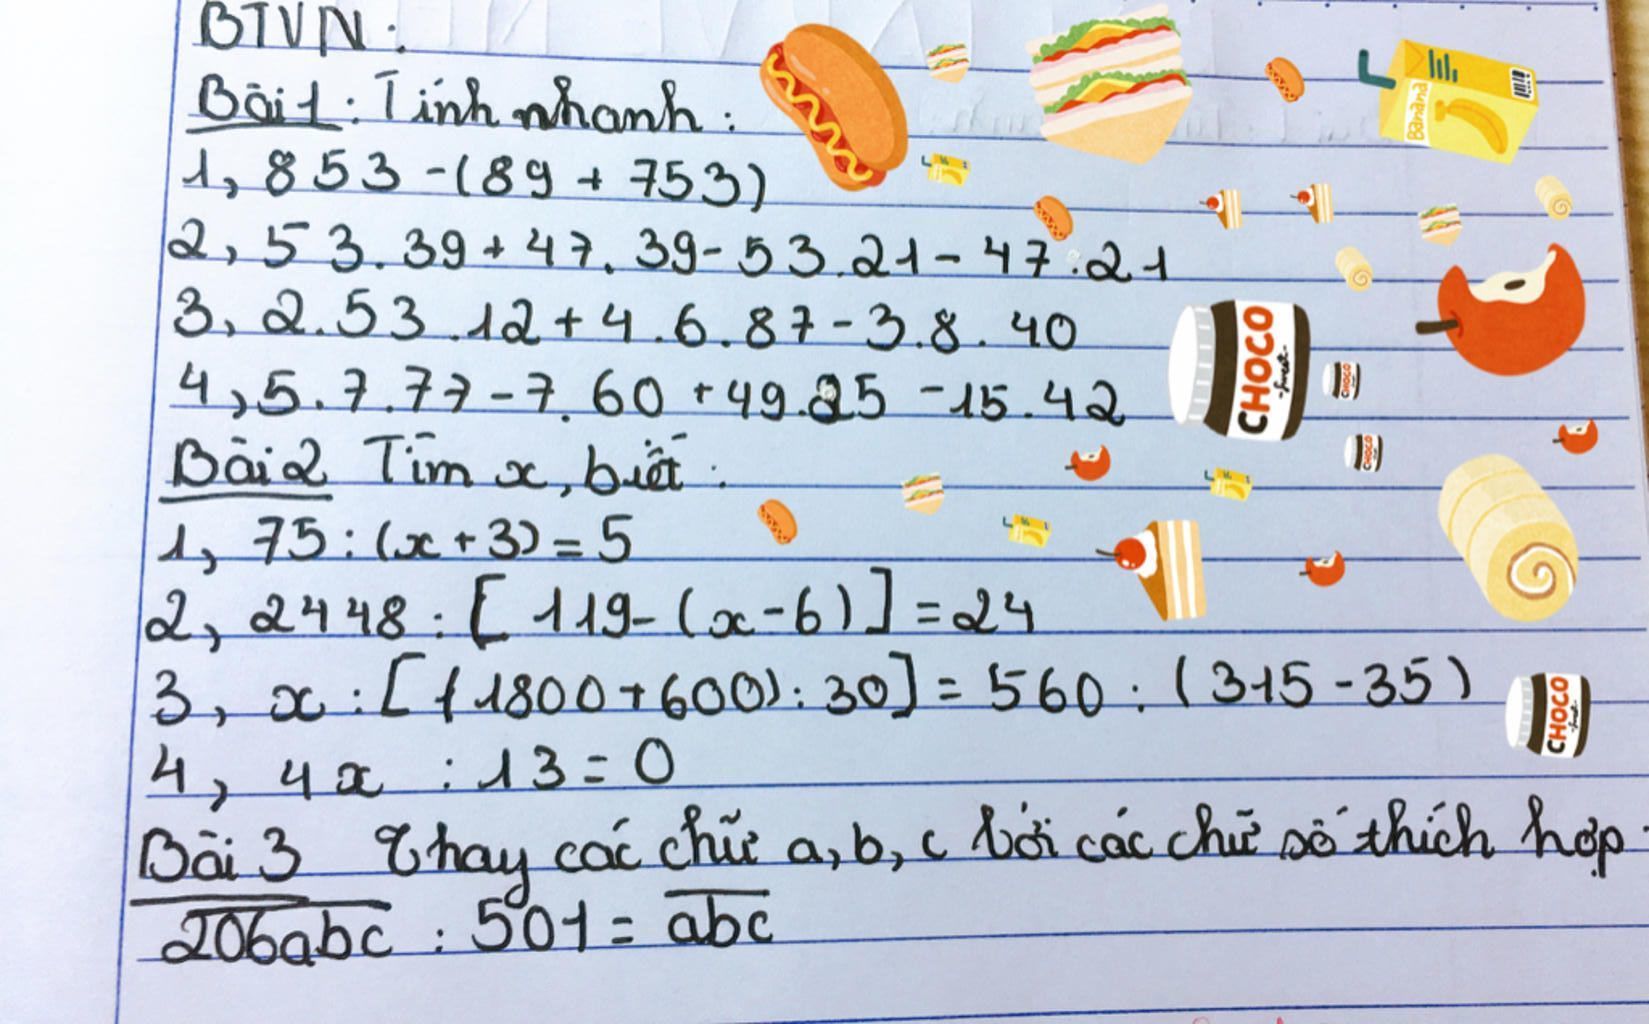 BTVN:
Bài 1: Tính nhanh:
1, 853 - (89 + 753)
2, 53.39 + 47.39 - 53.21 - 47.21
3, 2.53.12 + 4.6.87 - 3.8.40
4, 5.7.77 - 7.60 + 49.25 - 15.42
Bài 2 Tìm x, biết:
1, 75 : (x + 3) = 5
2, 2448 : [119 - (x - 6)] = 24
3, x : [(1800 + 600) : 30] = 560 : (315 - 35)
4, 4x : 13 = 0
Bài 3 Thay các chữ a, b, c bởi các chữ số thích hợp
206abc : 501 = abc
Banana
CHOCO
CHOCO
CHOCO
CHOCO